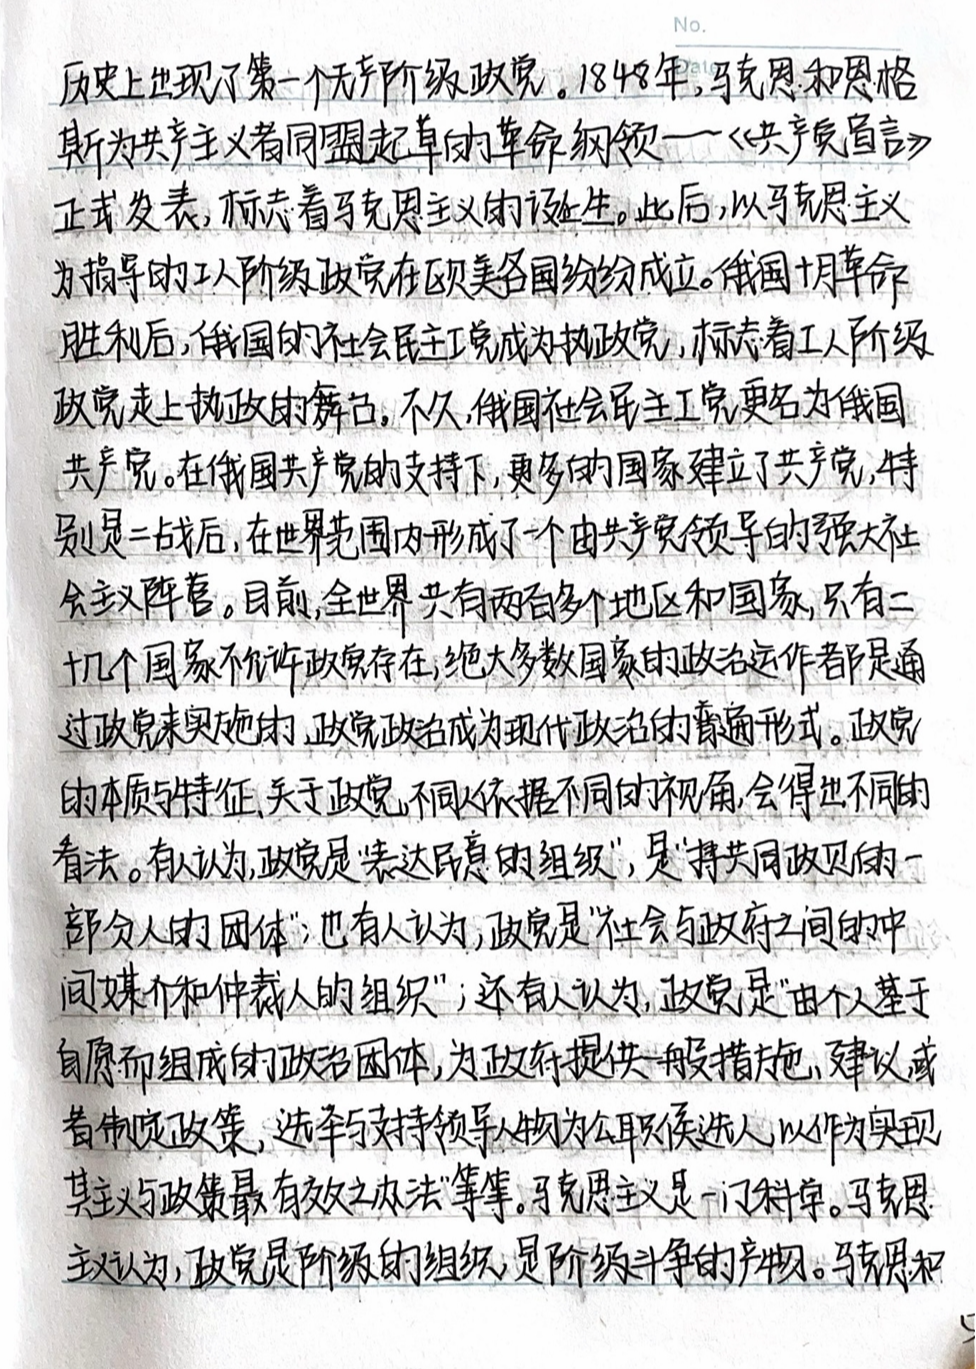 No.
Date
历史上出现了第一个无产阶级政党。1848年,马克思和恩格
斯为共产主义者同盟起草的革命纲领——《共产党宣言》
正式发表,标志着马克思主义的诞生。此后,以马克思主义
为指导的工人阶级政党在欧美各国纷纷成立。俄国十月革命
胜利后,俄国的社会民主工党成为执政党,标志着工人阶级
政党走上执政的舞台。不久,俄国社会民主工党更名为俄国
共产党。在俄国共产党的支持下,更多的国家建立了共产党,特
别是二战后,在世界范围内形成了一个由共产党领导的强大社
会主义阵营。目前,全世界共有两百多个地区和国家,只有二
十几个国家不允许政党存在,绝大多数国家的政治运作者都是通
过政党来实施的,政党政治成为现代政治的普遍形式。政党
的本质与特征、关于政党,不同人依据不同的视角,会得出不同的
看法。有人认为,政党是“表达民意的组织”,是“持共同政见的一
部分人的团体”;也有人认为,政党是“社会与政府之间的中
间媒介和仲裁人的组织”;还有人认为,政党是“由个人基于
自愿而组成的政治团体,为政府提供一般措施、建议或
者制定政策,选择与支持领导人物为公职候选人,以作为实现
其主义与政策最有效之办法”等等。马克思主义是一门科学。马克思
主义认为,政党是阶级的组织,是阶级斗争的产物。马克思和